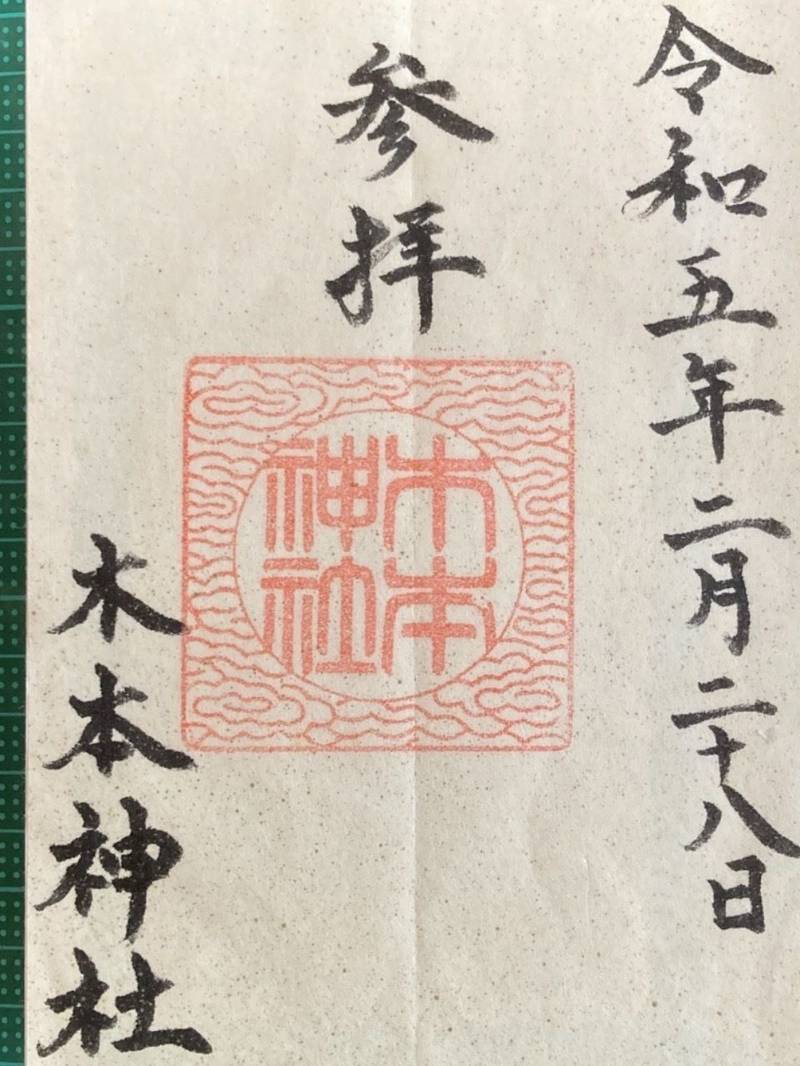 令和五年二月二十八日
参拝
木本
神社
木本神社